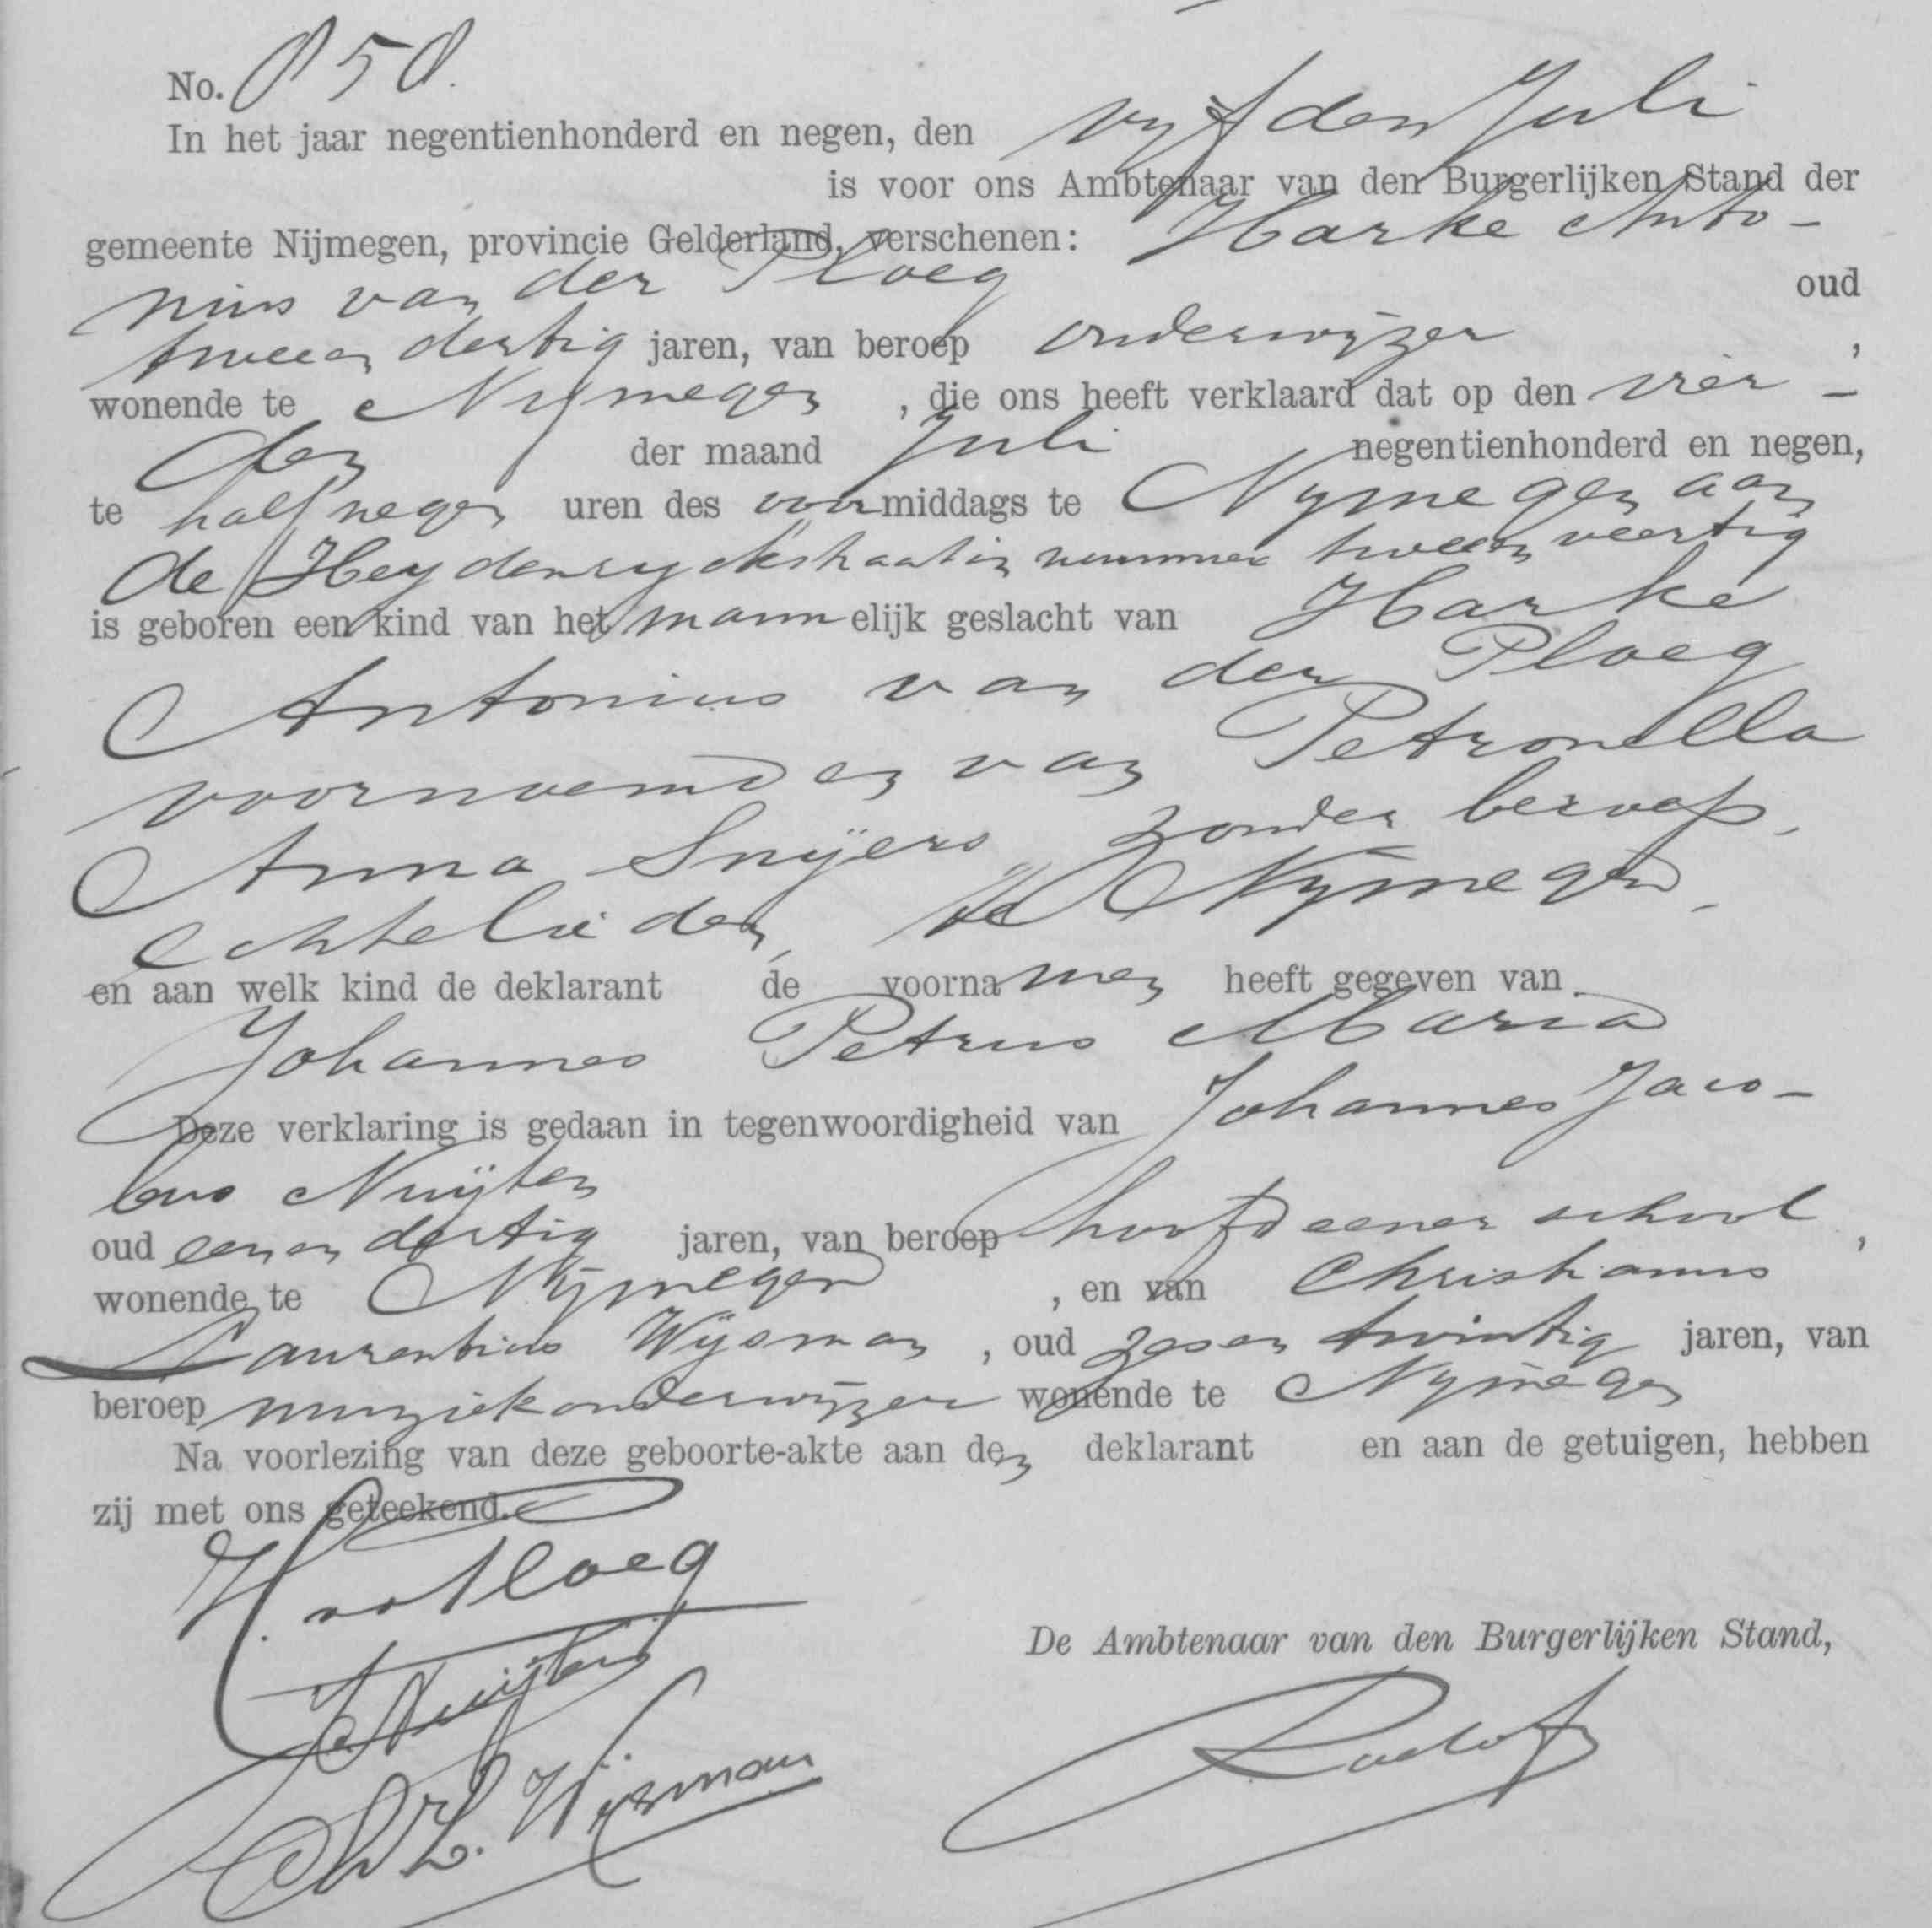 No. 858.
In het jaar negentienhonderd en negen, den vijfden Juli
is voor ons Ambtenaar van den Burgerlijken Stand der
gemeente Nijmegen, provincie Gelderland, verschenen: Harke Anto-
nius van der Ploeg oud
tweeen dertig jaren, van beroep onderwijzer,
wonende te Nijmegen, die ons heeft verklaard dat op den vier-
den der maand Juli negentienhonderd en negen,
te half negen uren des voormiddags te Nijmegen aan
de Heydenryckstraat in nummer tweeen veertig
is geboren een kind van het mannelijk geslacht van Harke
Antonius van der Ploeg
voornoemd en van Petronella
Anna Snijers, zonder beroep,
echtelieden, te Nijmegen,
en aan welk kind de deklarant de voornamen heeft gegeven van
Johannes Petrus Maria
Deze verklaring is gedaan in tegenwoordigheid van Johannes Jaco-
bus Nuijten
oud eenen dertig jaren, van beroep hoofd eener school,
wonende te Nijmegen, en van Christianus
Laurentius Wijsman, oud zesen twintig jaren, van
beroep muziekonderwijzer wonende te Nijmegen
Na voorlezing van deze geboorte-akte aan den deklarant en aan de getuigen, hebben
zij met ons geteekend.
H. vd Ploeg
J Nuijten
De Ambtenaar van den Burgerlijken Stand,
Ch L. Wijsman